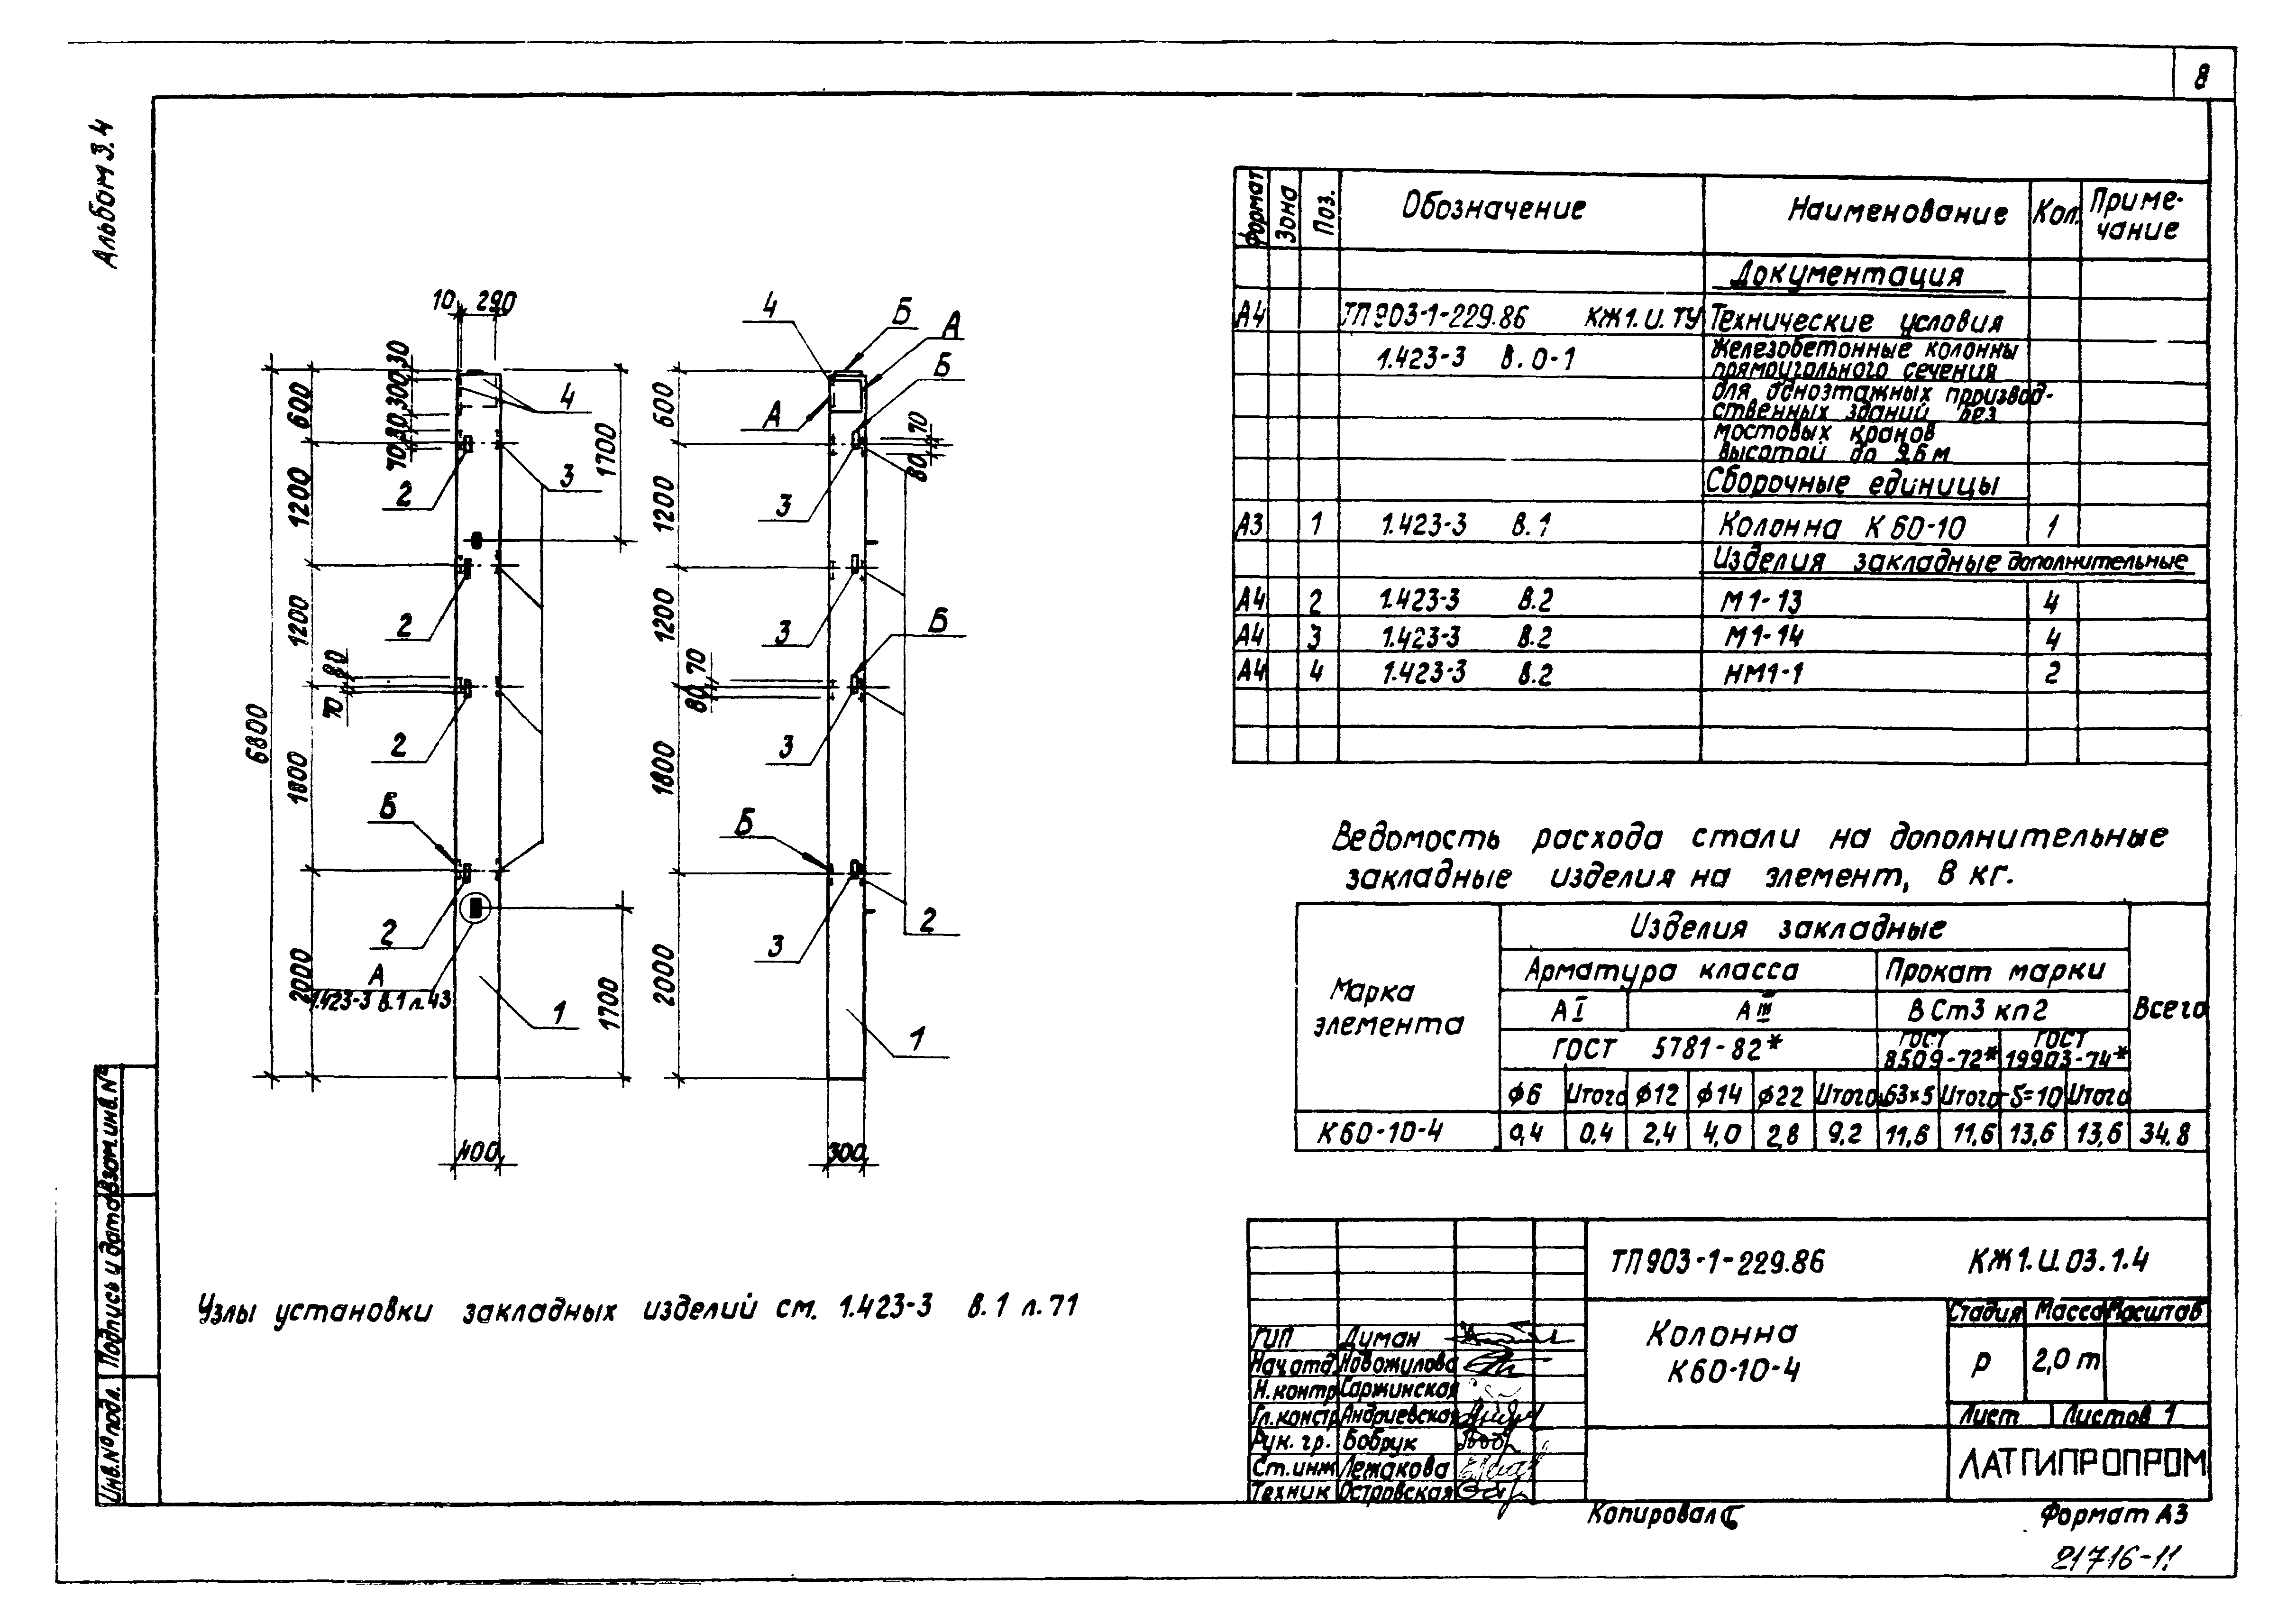 8
Альбом 3.4
10 290
30
300
80
70
600
1200
1200
1800
2000
6800
80
70
1700
1700
4
3
2
2
2
2
Б
А
1.423-3 в.1 л.43
1
400
4
Б
А
Б
А
600
1200
1200
1800
2000
70
80
70
80
3
3
3
3
Б
Б
2
1
300
Узлы установки закладных изделий см. 1.423-3 в.1 л.71
Формат Зона Поз. Обозначение Наименование Кол. Приме-
чание
Документация
А4 ТП903-1-229.86 КЖ1.И.ТУ Технические условия
1.423-3 в.0-1 Железобетонные колонны
прямоугольного сечения
для одноэтажных производ-
ственных зданий без
мостовых кранов
высотой до 9.6 м
Сборочные единицы
А3 1 1.423-3 в.1 Колонна К60-10 1
Изделия закладные дополнительные
А4 2 1.423-3 в.2 М1-13 4
А4 3 1.423-3 в.2 М1-14 4
А4 4 1.423-3 в.2 НМ1-1 2
Ведомость расхода стали на дополнительные
закладные изделия на элемент, в кг.
Марка
элемента
Изделия закладные
Всего
Арматура класса Прокат марки
АI АIII ВСт3 кп2
ГОСТ 5781-82* ГОСТ
8509-72* ГОСТ
19903-74*
ϕ6 Итого ϕ12 ϕ14 ϕ22 Итого 63×5 Итого -S=10 Итого
К60-10-4 0,4 0,4 2,4 4,0 2,8 9,2 11,6 11,6 13,6 13,6 34.8
ТП903-1-229.86 КЖ1.И.03.1.4
Колонна
К60-10-4
Стадия Масса Масштаб
Р 2,0 т
Лист Листов 1
ЛАТГИПРОПРОМ
ГИП Думан
Нач.отд. Новожилова
Н.контр Саржинская
Гл.констр Андриевская
Рук. гр. Бобрук
Ст.инж Лежакова
Техник Островская
Копировал
Формат А3
21716-11
Взам.инв.№
Подпись и дата
Инв.№ подл.